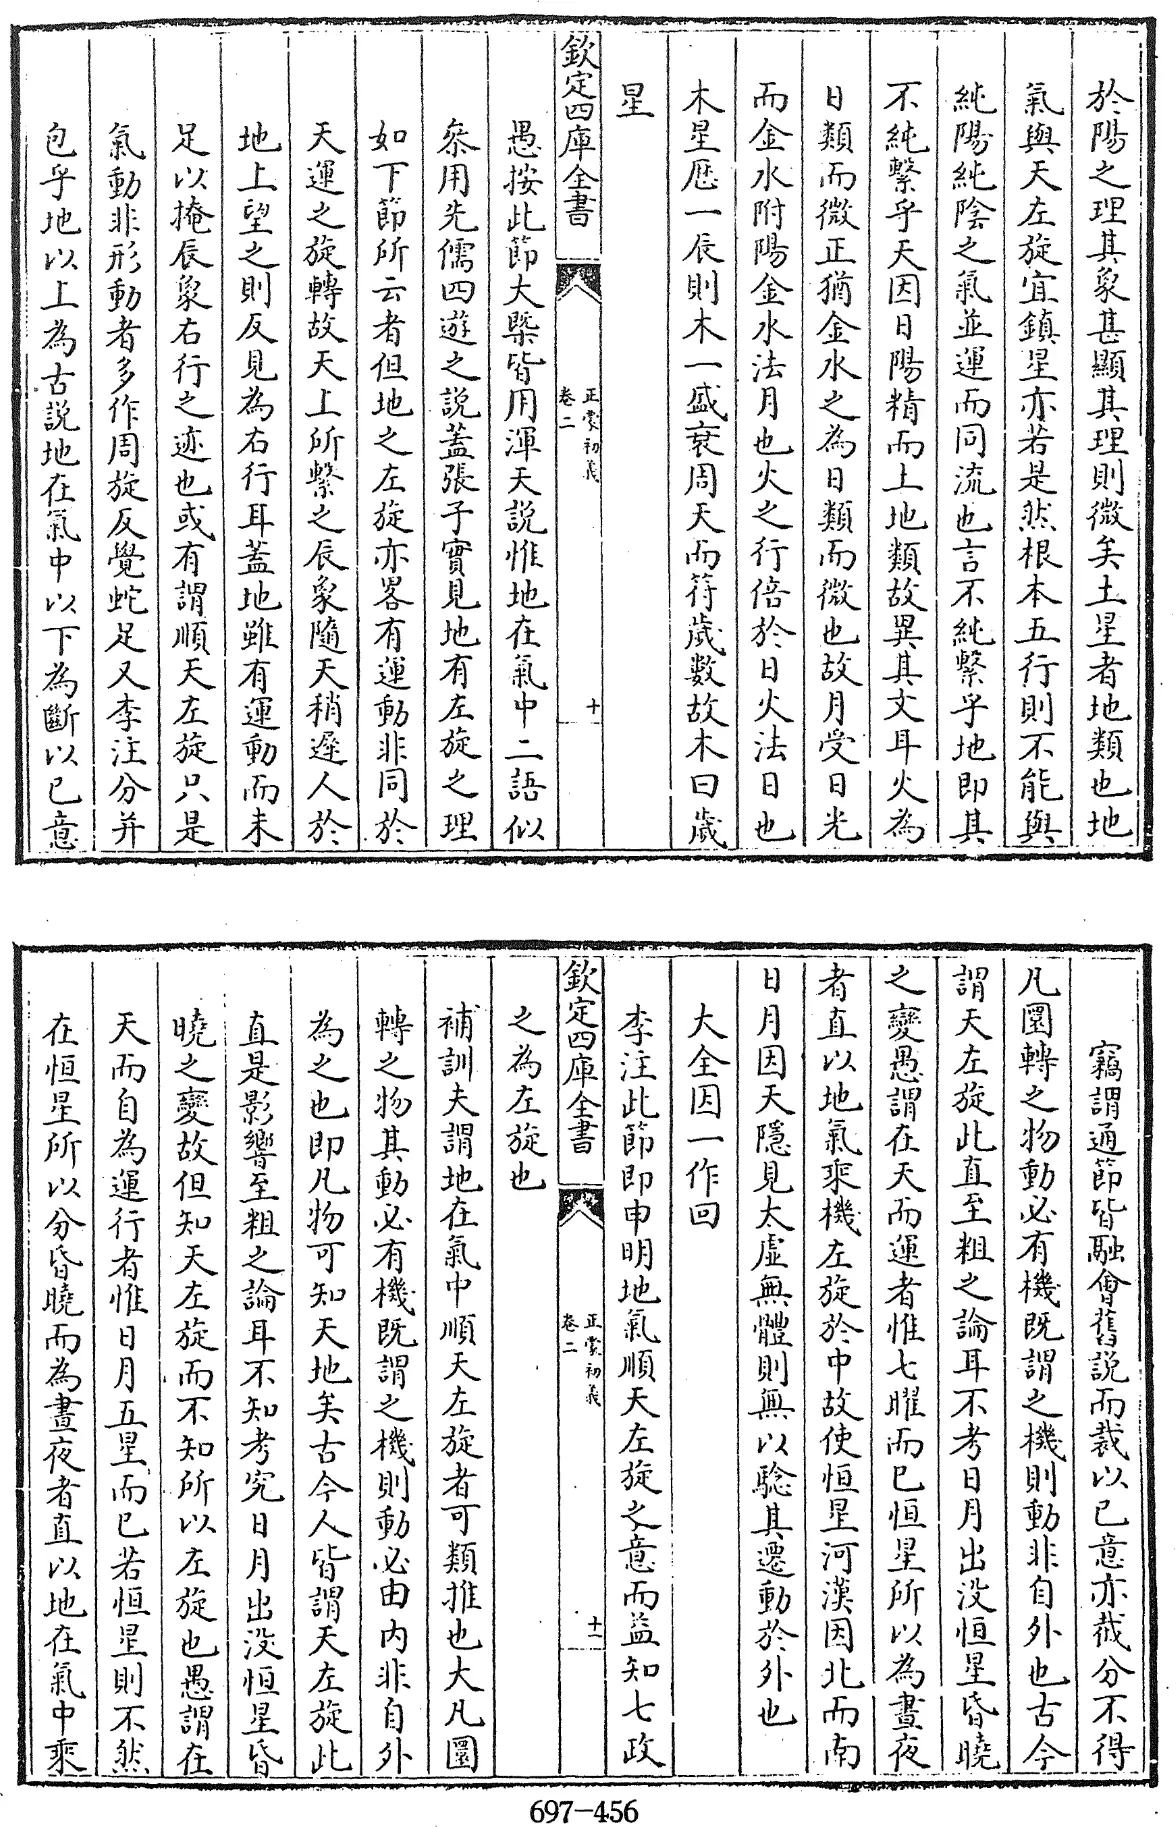 於陽之理其象甚顯其理則微矣土星者地類也地
氣與天左旋宜鎮星亦若是然根本五行則不能與
純陽純陰之氣並運而同流也言不純繫乎地即其
不純繫乎天因日陽精而土地類故異其文耳火為
日類而微正猶金水之為日類而微也故月受日光
而金水附陽金水法月也火之行倍於日火法日也
木星厯一辰則木一盛衰周天而符歲數故木曰歲
星
欽定四庫全書
正蒙初義
卷二
十
愚按此節大槩皆用渾天說惟地在氣中二語似
叅用先儒四遊之說蓋張子實見地有左旋之理
如下節所云者但地之左旋亦畧有運動非同於
天運之旋轉故天上所繫之辰象隨天稍遲人於
地上望之則反見為右行耳蓋地雖有運動而未
足以掩辰象右行之迹也或有謂順天左旋只是
氣動非形動者多作周旋反覺蛇足又李注分并
包乎地以上為古說地在氣中以下為斷以己意
竊謂通節皆融會舊說而裁以己意亦截分不得
凡圜轉之物動必有機既謂之機則動非自外也古今
謂天左旋此直至粗之論耳不考日月出没恒星昏曉
之變愚謂在天而運者惟七曜而已恒星所以為晝夜
者直以地氣乘機左旋於中故使恒星河漢因北而南
日月因天隱見太虛無體則無以驗其遷動於外也
大全因一作回
李注此節即申明地氣順天左旋之意而益知七政
欽定四庫全書
正蒙初義
卷二
十一
之為左旋也
補訓夫謂地在氣中順天左旋者可類推也大凡圜
轉之物其動必有機既謂之機則動必由内非自外
為之也即凡物可知天地矣古今人皆謂天左旋此
直是影響至粗之論耳不知考究日月出没恒星昏
曉之變故但知天左旋而不知所以左旋也愚謂在
天而自為運行者惟日月五星而已若恒星則不然
在恒星所以分昏曉而為晝夜者直以地在氣中乘
697-456